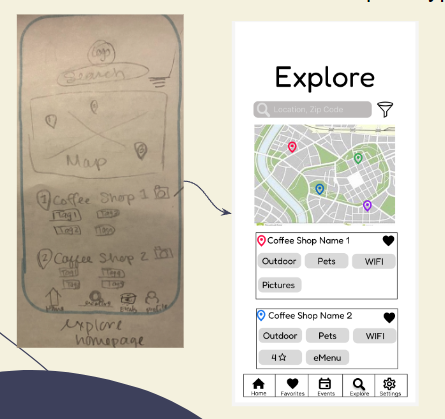 Logo
Search
Map
1 Coffee Shop 1
Tag1 Tag
Tag2 Tag
2 Coffee Shop 2
Tag Tag
Tag Tag
Home
profile
explore
homepage
Explore
Location, Zip Code
Coffee Shop Name 1
Outdoor Pets WIFI
Pictures
Coffee Shop Name 2
Outdoor Pets WIFI
4☆ eMenu
Home Favorites Events Explore Settings